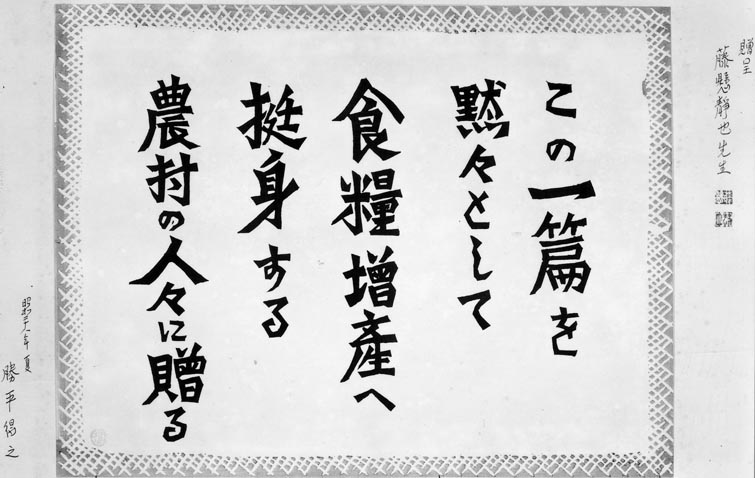 贈呈
藤懸靜也先生
この一篇を
黙々として
食糧増産へ
挺身する
農村の人々に贈る
年夏
勝平得之